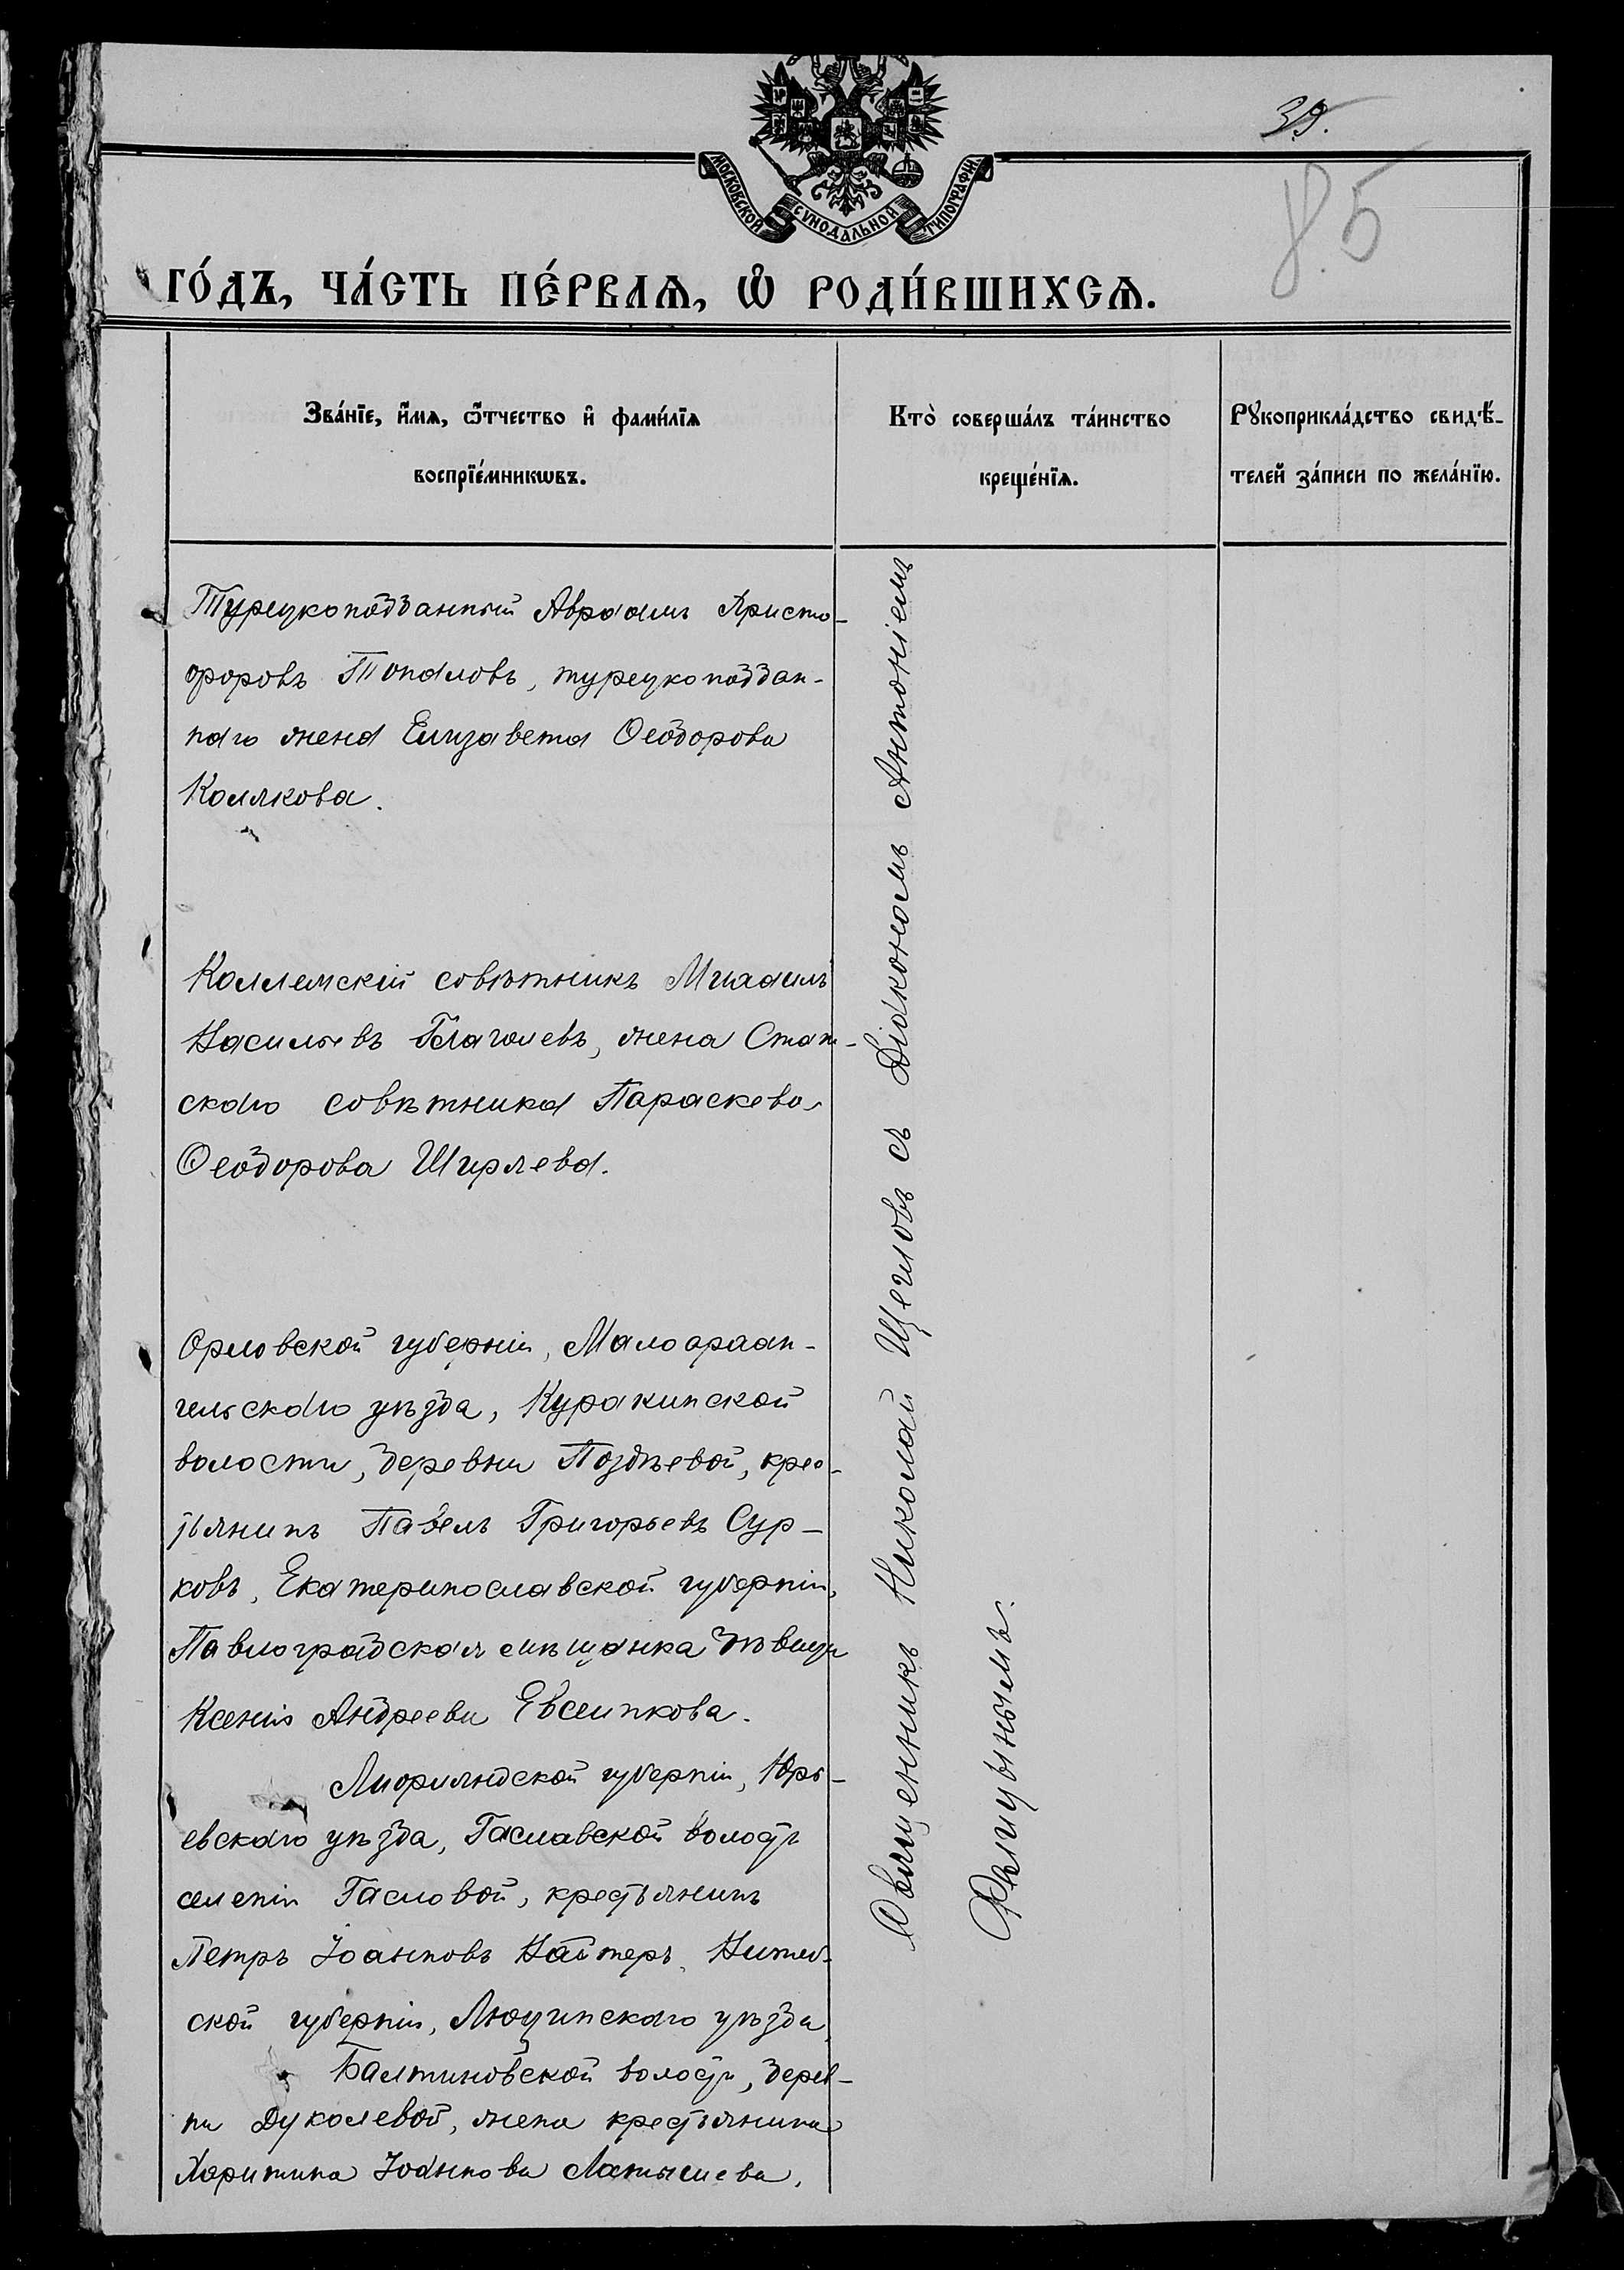 39.
85
МОСКОВСКОЙ СѴНОДАЛЬНОЙ ТИПОГРАФІИ
го́дъ, ча́сть пе́рвая, ѡ҆ роди́вшихся.
Зва́нїе, и҆́мѧ, ѻ҆́тчество и҆ фами́лїѧ
воспрїе́мникѡвъ.
Кто̀ соверша́лъ та́инство
креще́нїѧ.
Рꙋкоприкла́дство свидѣ́-
телей за́писи по жела́нїю.
Турецкоподданный Авраамъ Христо-
форовъ Топаловъ, турецкоподдан-
наго жена Елизавета Ѳеодорова
Колякова.
Коллежскій совѣтникъ Михаилъ
Васильевъ Глаголевъ, жена Стат-
скаго совѣтника Параскева
Ѳеодорова Ширяева.
Орловской губерніи, Малоархан-
гельскаго уѣзда, Куракинской
волости, деревни Поздѣевой, крес-
тьянинъ Павелъ Григорьевъ Сур-
ковъ, Екатеринославской губерніи,
Павлоградская мѣщанка дѣвица
Ксенія Андреева Евсеикова.
Лифляндской губерніи, Юрь-
евскаго уѣзда, Гаславской волости
селенія Гасловой, крестьянинъ
Петръ Іоанновъ Вайтеръ, Витеб-
ской губерніи, Люцинскаго уѣзда
Балтиновской волости, дерев-
ни Дуколевой, жена крестьянина
Харитина Іоаннова Латышева.
Священникъ Николай Щегловъ съ Діакономъ Антоніемъ
Фалицынымъ.